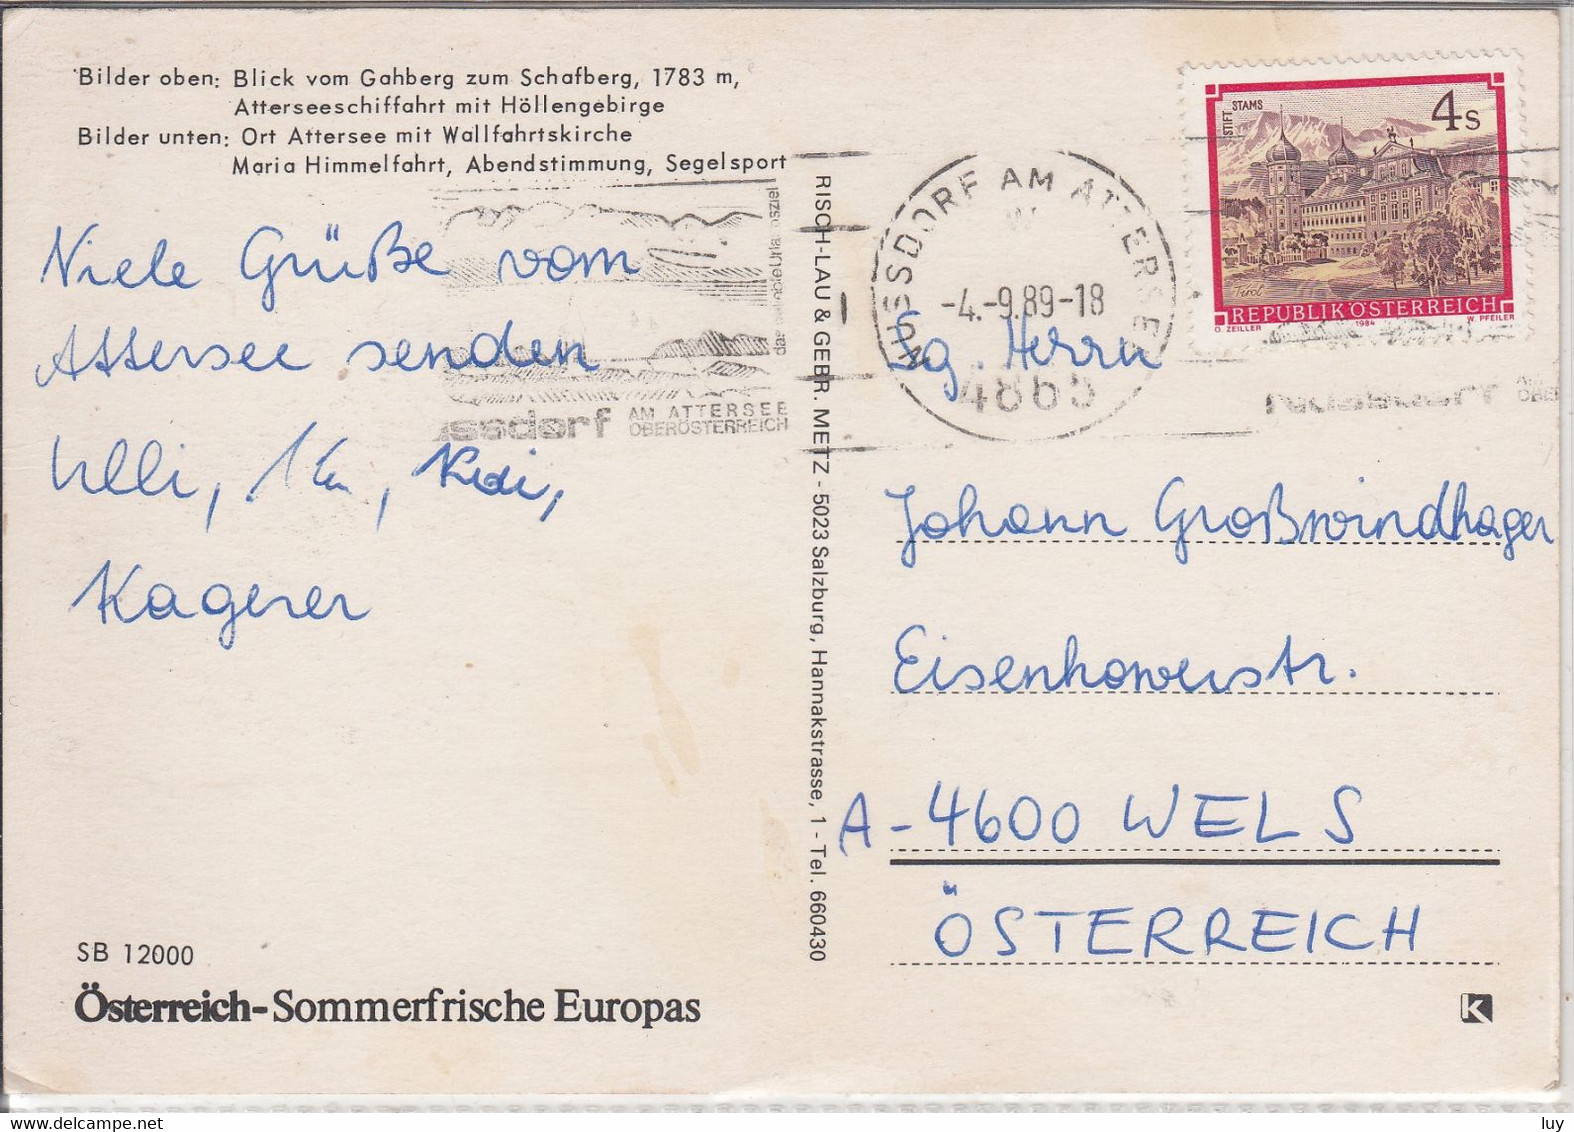 Bilder oben: Blick vom Gahberg zum Schafberg, 1783 m,
Atterseeschiffahrt mit Höllengebirge
Bilder unten: Ort Attersee mit Wallfahrtskirche
Maria Himmelfahrt, Abendstimmung, Segelsport
Viele Grüße vom
Attersee senden
Ulli, Kai,
Kagerer
ssdorf AM ATTERSEE
OBERÖSTERREICH
SB 12000
Österreich-Sommerfrische Europas
RISCH-LAU & GEBR. METZ - 5023 Salzburg, Hannakstrasse, 1 - Tel. 660430
NUSSDORF AM ATTERSEE
-4.-9.89-18
4865
STIFT STAMS
4s
Tirol
REPUBLIK ÖSTERREICH
O. ZEILLER 1984 W. PFEILER
Sg. Herrn
Johann Großwindhager
Eisenhowerstr.
A-4600 WELS
ÖSTERREICH
K
luy